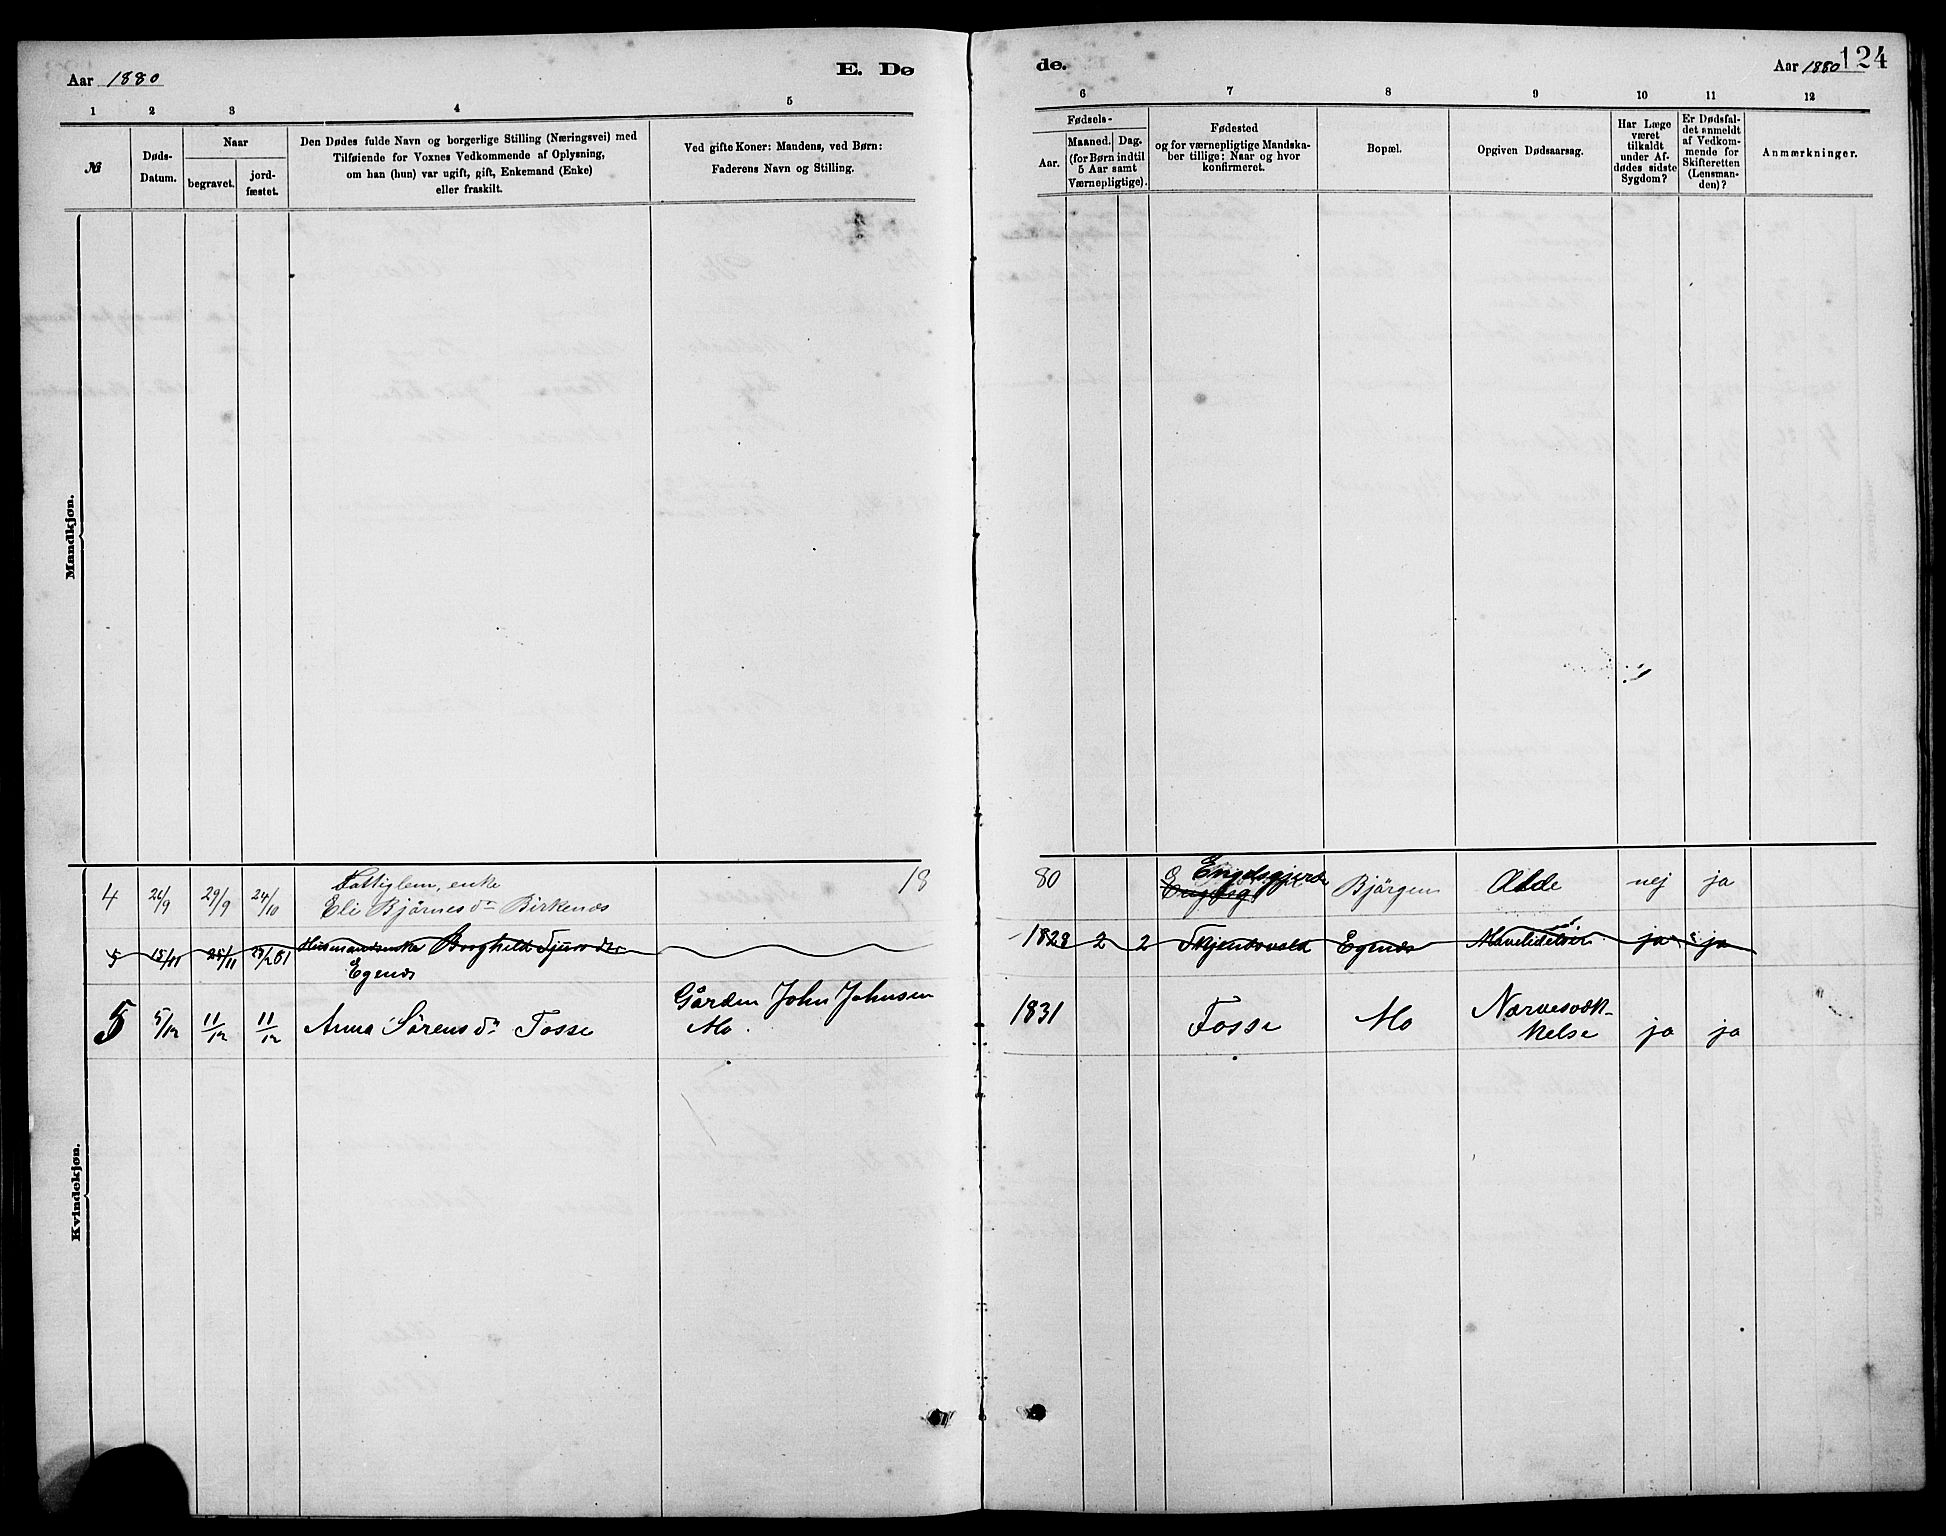 Aar 1880
E. Dø
de.
Aar 1880
124
1 2 3 4 5
6 7 8 9 10 11 12
№
Døds-
Datum.
Naar
begravet.
jord-
fæstet.
Den Dødes fulde Navn og borgerlige Stilling (Næringsvei) med
Tilføiende for Voxnes Vedkommende af Oplysning,
om han (hun) var ugift, gift, Enkemand (Enke)
eller fraskilt.
Ved gifte Koner: Mandens, ved Børn:
Faderens Navn og Stilling.
Fødsels-
Aar.
Maaned. Dag.
(for Børn indtil
5 Aar samt
Værnepligtige).
Fødested
og for værnepligtige Mandska-
ber tillige: Naar og hvor
konfirmeret.
Bopæl.
Opgiven Dødsaarsag.
Har Læge
været
tilkaldt
under Af-
dødes sidste
Sygdom?
Er Dødsfal-
det anmeldt
af Vedkom-
mende for
Skifteretten
(Lensman-
den)?
Anmærkninger.
Mandkjøn.
Kvindekjøn.
Fattiglem, enke
4 26/9 29/9 24/10 Eli Bjørnes dr Birkenæs
18 80 Engelsgjerde Bjørgen Ælde nej ja
5 15/11 25/11 Husmandsenke Borghild
Egenæs
1828 2 2 Egenæs ja ja
Gården John Johnsen
5 5/12 11/12 11/12 Anna Sørens dr Fosse Mo.
1831 Fosse Mo Nærvesvæk-
kelse ja ja